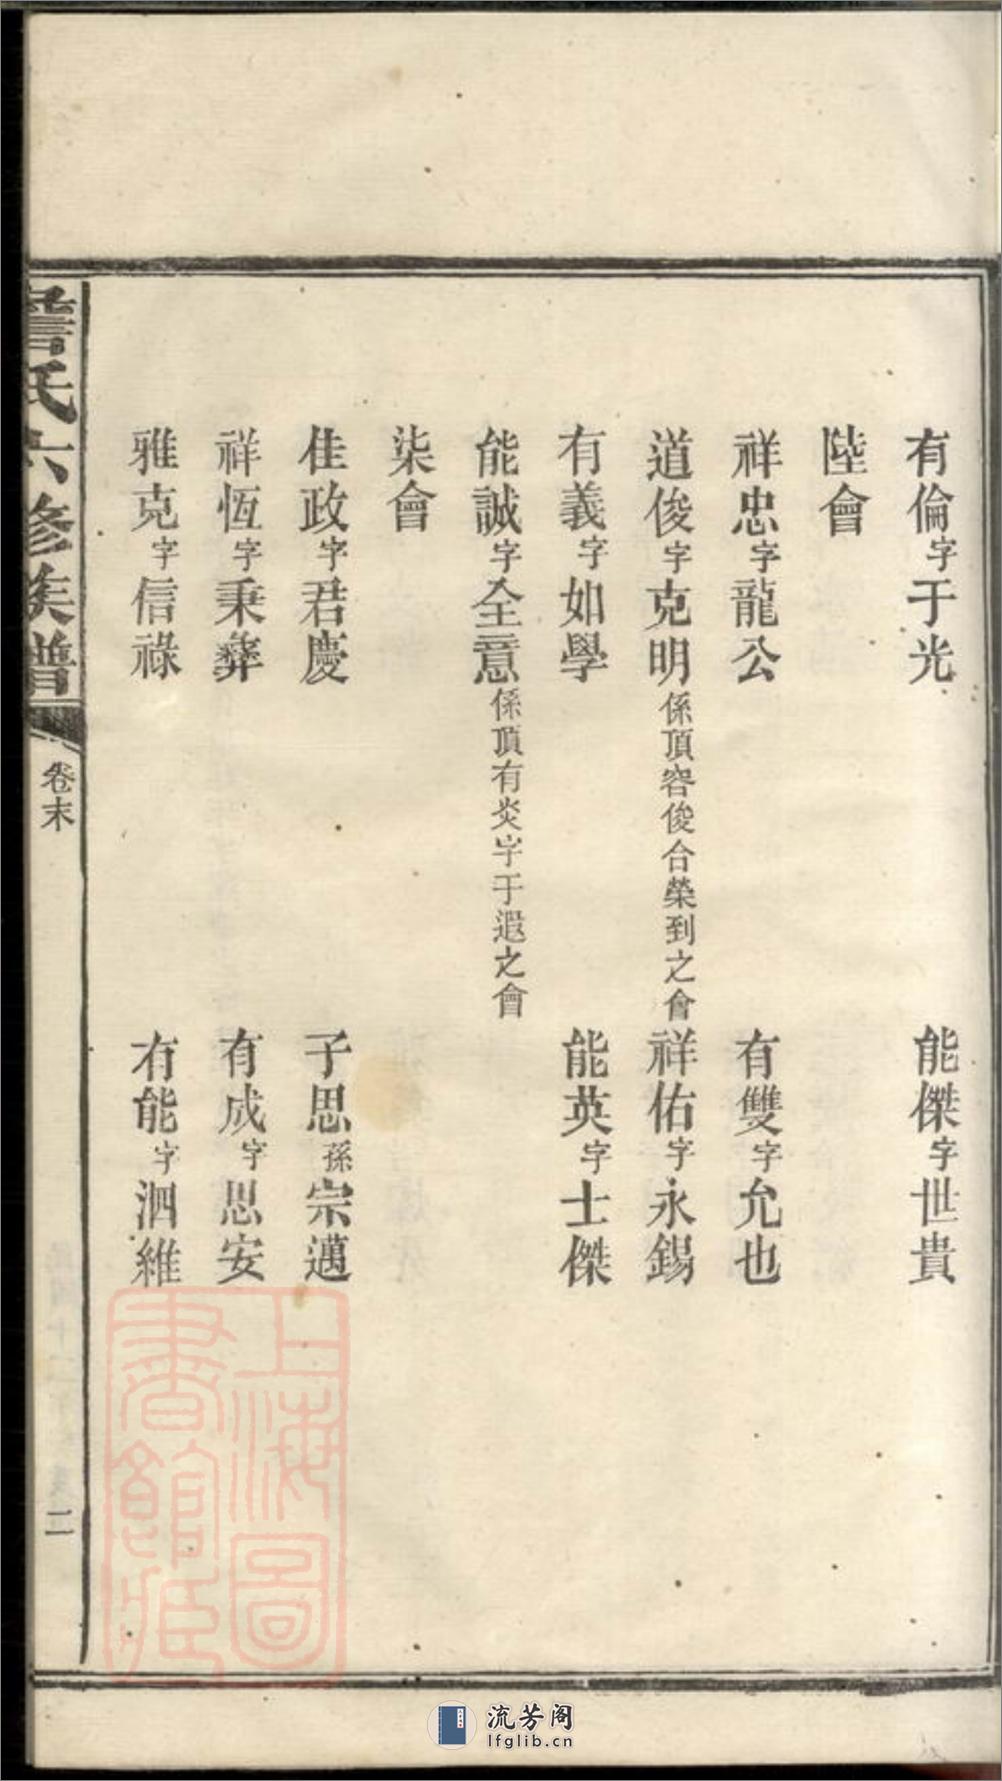 有倫字于光　能傑字世貴
陸會
祥忠字龍公　有雙字允也
道俊字克明係頂容俊合榮到之會　祥佑字永錫
有義字如學　能英字士傑
能誠字全意係頂有炎字于遐之會
柒會
佳政字君慶　子思孫宗邁
祥恆字秉彝　有成字思安
雅克字信祿　有能字泗維
詹氏六修族譜
卷末
二
上海圖書館藏
流芳阁
lfglib.cn